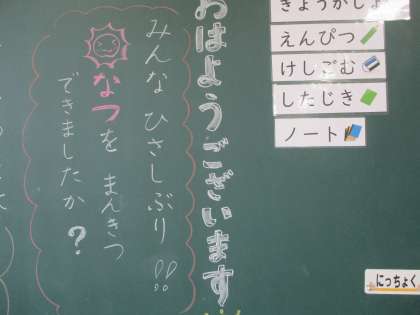 きょうかしょ
えんぴつ
けしごむ
したじき
ノート
にっちょく
おはようございます
みんな ひさしぶり!!
なつを まんきつ
できましたか?